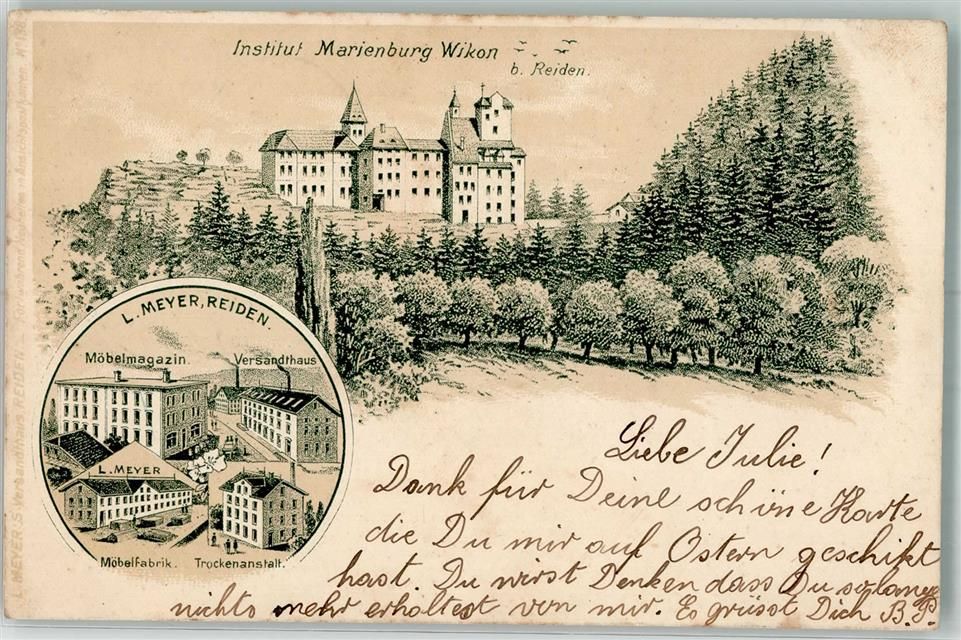 Institut Marienburg Wikon
b. Reiden.
L. MEYER, REIDEN.
Möbelmagazin.
Versandthaus
L. MEYER
Möbelfabrik.
Trockenanstalt.
Liebe Julie!
Dank für Deine schöne Karte
die Du mir auf Ostern geschikt
hast. Du wirst Denken dass Du so lange
nichts mehr erholtest von mir. Es grüsst Dich B.P.
L. MEYER, S. Versandthaus, REIDEN.